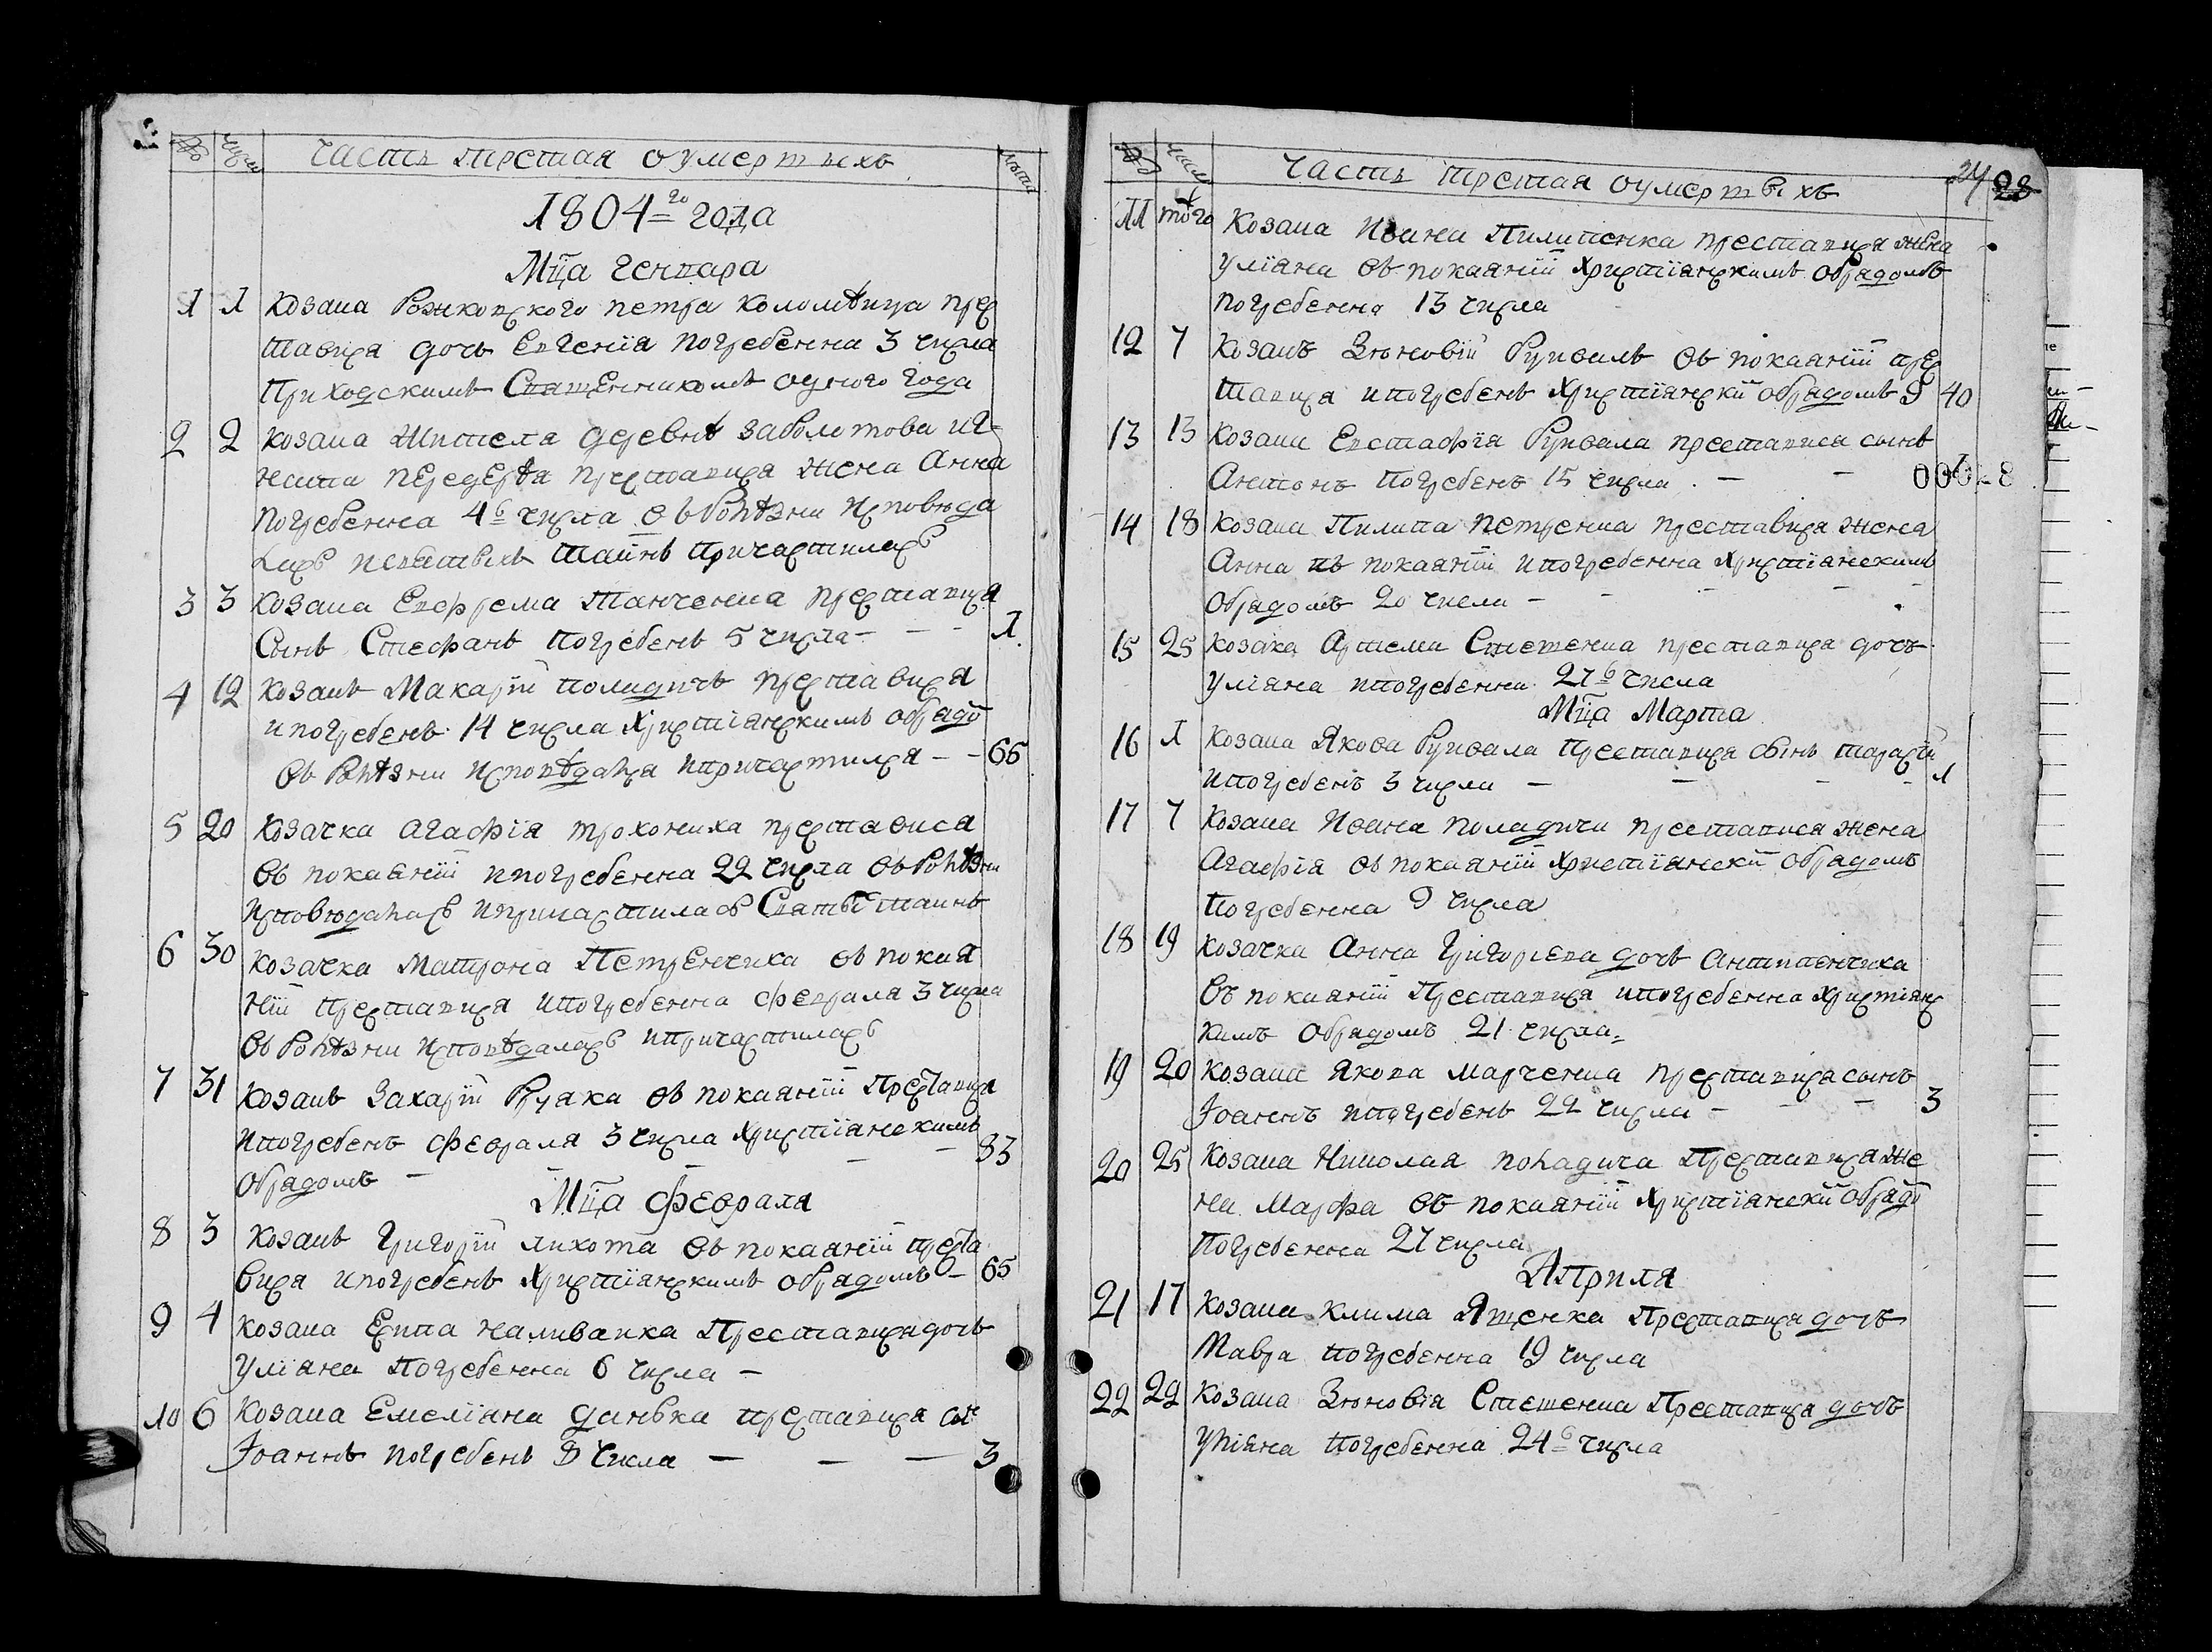 № число Часть третая оумертвихъ лета
1804го года
Мца Генвара
1 1 Козака Рожковского Петра Коломѣица прес
тавися дочь Евгенїя погребенна 3 числа
Приходскимъ Священникомъ одного года
2 2 Козака жителя деревнѣ Заболотова Иг
ната Передерѣя преставися жена Анна
погребенна 4б числа въ болѣзни исповюда
лась исвятыхъ таинъ причастилась
3 3 Козака Евфрема Танченка преставися
Сынъ Стефанъ погребенъ 5 числа - - - 1.
4 12 Козакъ Макарїй Поладичъ преставися
и погребенъ 14 числа Христїанскимъ обрадо
въ болѣзни исповѣдался ипричастился - - 66
5 20 Козачка Агафїя Трохониха преставися
въ покаянїи ипогребенна 22 числа въ болѣзни
исповюдалась ипричастилась Святы таинъ
6 30 Козачка Матрона Петренчиха въ покая
нїи преставися ипогребенна февраля 3 числа
въ болѣзни исповѣдалась ипричастилась
7 31 Козакъ Захарїй Руяка въ покаянїи Преставися
ипогребенъ февраля 3 числа Христїанскимъ
обрадомъ - - - - 33
Мца февраля
8 3 Козакъ Григорїй Лихота въ покаянїи преста
вися ипогребенъ Христїанскимъ обрадомъ - 65
9 4 Козака Еппа Наливайка Преставися дочь
Улїана Погребенна 6 числа -
10 6 Козака Емелїана Данька преставися сынъ
Іоаннъ погребенъ 8 числа - - - 3
№ число Часть третая оумертвихъ 24 28
11 того Козака Ивана Пилипенка преставися жена
Улїана въ покаянїи Христїанскимъ обрадомъ
погребенна 13 числа
12 7 Козакъ Зѣновїй Рупвалъ въ покаянїи прес
тавися ипогребенъ Христїански обрадомъ 9 40
13 13 Козака Евстафїя Рупвала преставися сынъ
Антонъ погребенъ 15 числа . - - 1
00028
14 18 Козака Пилипа Петренка преставися жена
Анна въ покаянїи ипогребенна Христїанскимъ
обрадомъ 20 числа - - - - - -
15 25 Козака Артема Стешенка преставися дочъ
Улїана ипогребенна 27б числа
Мца Марта
16 1 Козака Якова Рупвала Преставися сынъ Тарасїй
ипогребенъ 3 числа - - - - 1
17 7 Козака Ивана Поладича преставися жена
Агафїя въ покаянїи Христїански обрадомъ
погребенна 9 числа
18 19 Козачка Анна Григорїева дочъ Антипенчиха
въ покаянїи Преставися ипогребенна Христїанс
кимъ обрадомъ 21 числа
19 20 Козака Якова Марченка преставися сынъ
Іоаннъ ипогребенъ 22 числа - - - 3
20 25 Козака Николая Поладича Преставися же
на Марфа въ покаянїи Христїански обрадо
погребенна 27 числа
Априля
21 17 Козака Клима Ященка Преставися дочъ
Мавра погребенна 19 числа
22 22 Козака Зѣновїя Стешенка Преставися дочъ
Улїана погребенна 24б числа